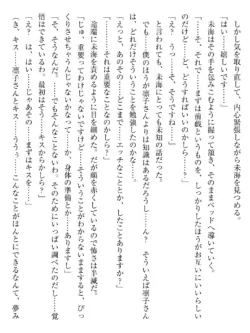 しかし気を取り直して、内心緊張しながら未海を見つめる。
「は……嬉しい……です」
未海はその手を包みこむように握って頷き、そのままベッドへ導いていく。
「えっと……それで……まずは前戯というものを、しっかりしたほうがお互いにいいらしい
のだけど……ど、どうかしら?」
「え……あ、そ、そうですね……」
と言われても、未海にとっても未知の話だった。
(も、もしかして、僕のほうが凛子さんよりは知識はあるだろうし……そういえば凛子さん
は、どれだけそういうことを勉強したのかな……)
「えっと、あの……どこまで……エッチなことしか、したこと、ありますか?」
「え……それは、重要なことなのかしら?」
途端に未海を責めるように目を細めた。だが顔を赤くしているので怖さは半減だ。
「じゅ、重要ってわけじゃないんですけど……どこまでかわからないまますると、びっ
くりさせちゃうんじゃないかなって……か、身体の準備とか……ありますし」
「そ、そうなんだ。でもそんなことなら、大丈夫よ。そのためにいっぱい調べたのだし……覚
悟はできているわ。最初はそう……キスから……よね。まずはキスを……」
「き、キス……凛子さんとキス……ううぅ……こんなことがほんとにできるなんて、夢み